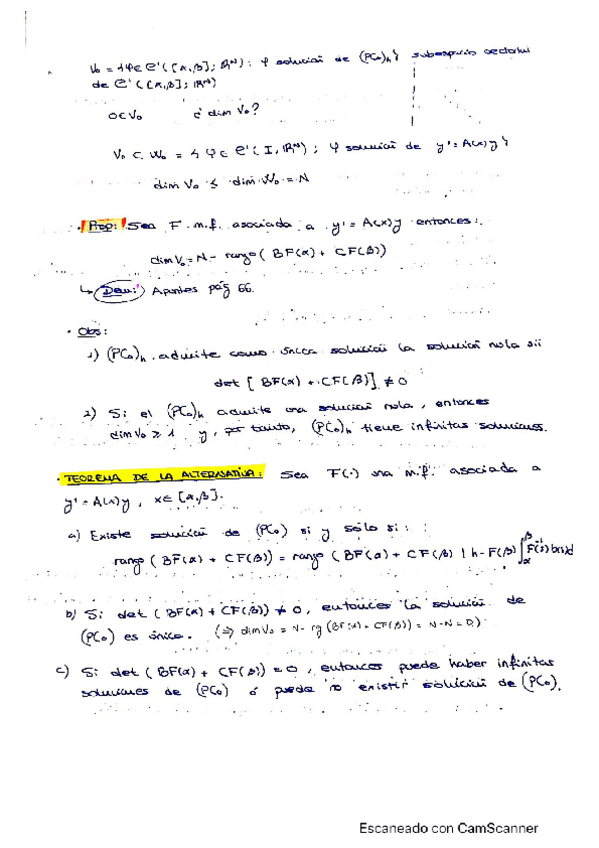 V₀ = {φ ∈ C¹([α,β]; ℝᴺ) : φ solución de (PC₀)ₕ} subespacio vectorial
de C¹([α,β]; ℝᴺ)
0 ∈ V₀ ¿ dim V₀?
V₀ ⊂ W₀ = {φ ∈ C¹(I, ℝᴺ) ; φ solución de y' = A(x)y}
dim V₀ ≤ dim W₀ = N
· Prop: Sea F m.f. asociada a y' = A(x)y entonces:
dim V₀ = N - rango (BF(α) + CF(β))
↳ Dem: Apuntes pág 66.
· Obs:
1) (PC₀)ₕ admite como única solución la solución nula sii
det [BF(α) + CF(β)] ≠ 0
2) Si el (PC₀)ₕ admite una solución nula, entonces
dim V₀ ≥ 1 y, por tanto, (PC₀)ₕ tiene infinitas soluciones.
· TEOREMA DE LA ALTERNATIVA: Sea F(·) una m.f. asociada a
y' = A(x)y, x ∈ [α,β].
a) Existe solución de (PC₀) si y solo si:
rango (BF(α) + CF(β)) = rango (BF(α) + CF(β) | h - F(β) ∫_α^β F⁻¹(s) b(s)d
b) Si det (BF(α) + CF(β)) ≠ 0, entonces la solución de
(PC₀) es única. (⇒ dim V₀ = N - rg (BF(α) + CF(β)) = N - N = 0)
c) Si det (BF(α) + CF(β)) = 0, entonces puede haber infinitas
soluciones de (PC₀) ó puede no existir solución de (PC₀).
Escaneado con CamScanner